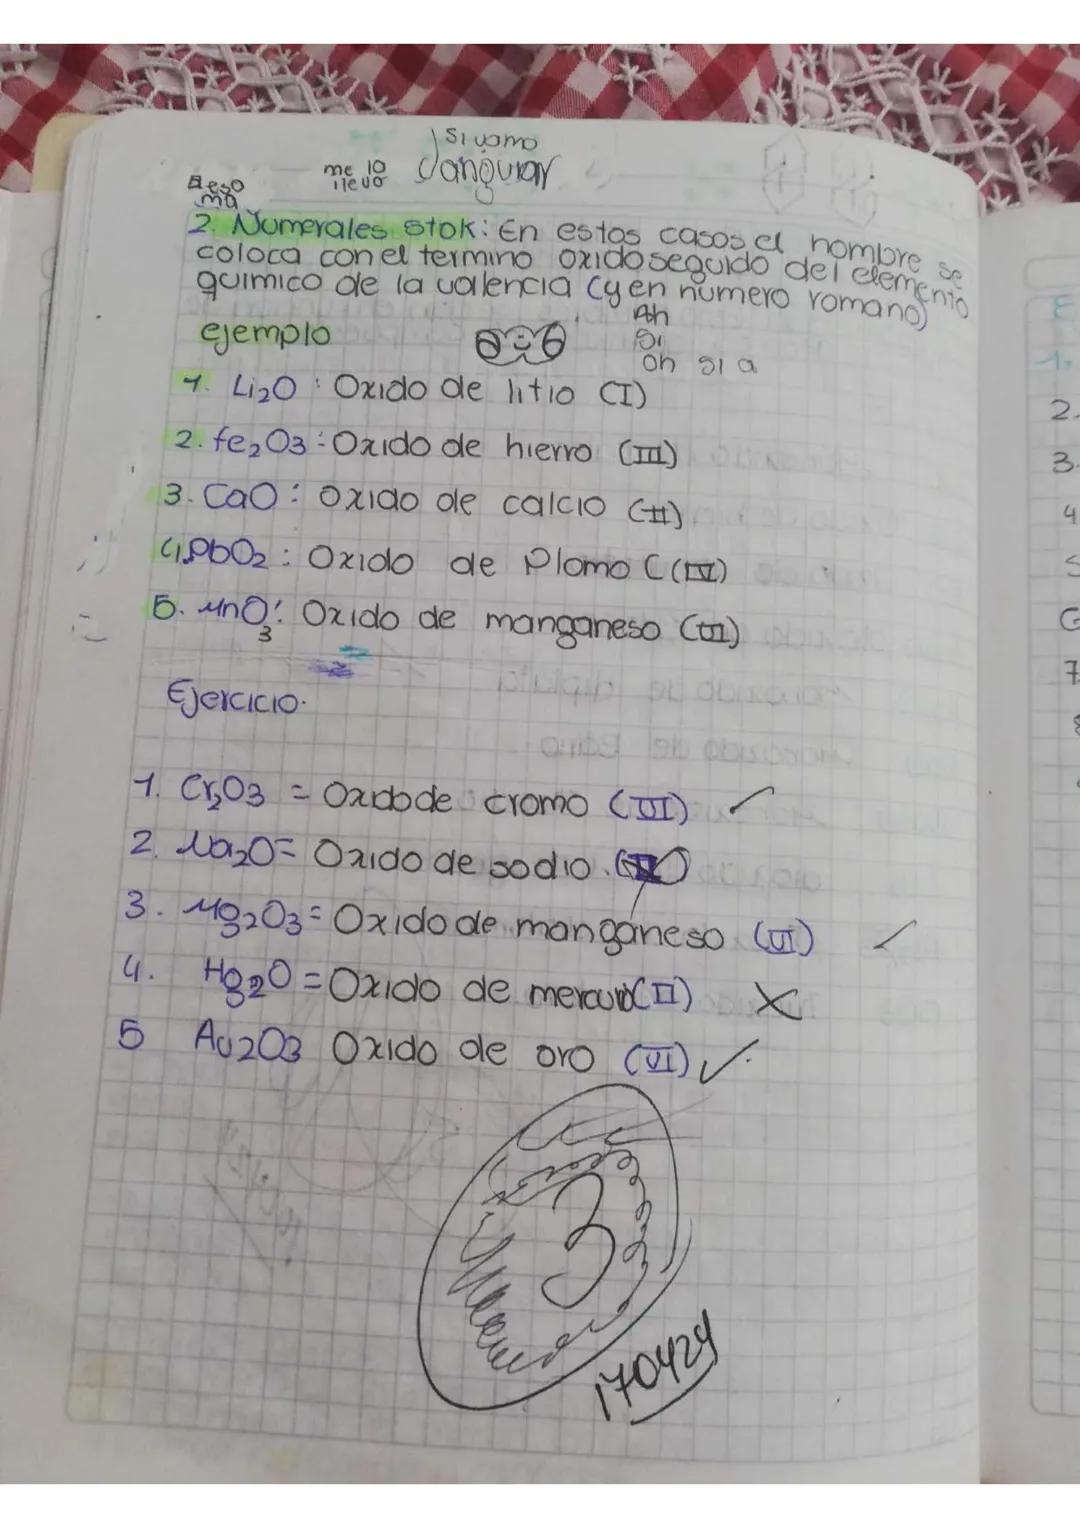 Si vamo
me lo
llevo
Janguiar
Beso
ma
2. Numerales stok: En estos casos el nombre se
coloca con el termino oxido seguido del elemento
quimico de la valencia (y en numero romano)
Ah
ejemplo
Si
Oh si a
1. Li2O : Oxido de litio (I)
2. fe2O3 : Oxido de hierro (III)
3. CaO : Oxido de calcio (II)
4. PbO2 : Oxido de Plomo ( (IV)
5. MnO3 : Oxido de manganeso (III)
Ejercicio.
1. Cr2O3 = Oxido de cromo (VI)
2. Na2O = Oxido de sodio.
3. Mg2O3 = Oxido de manganeso (VI)
4. Hg2O = Oxido de mercurio (II)
5 Au2O3 Oxido de oro (VI)
3
170424
2.
3.
4
7